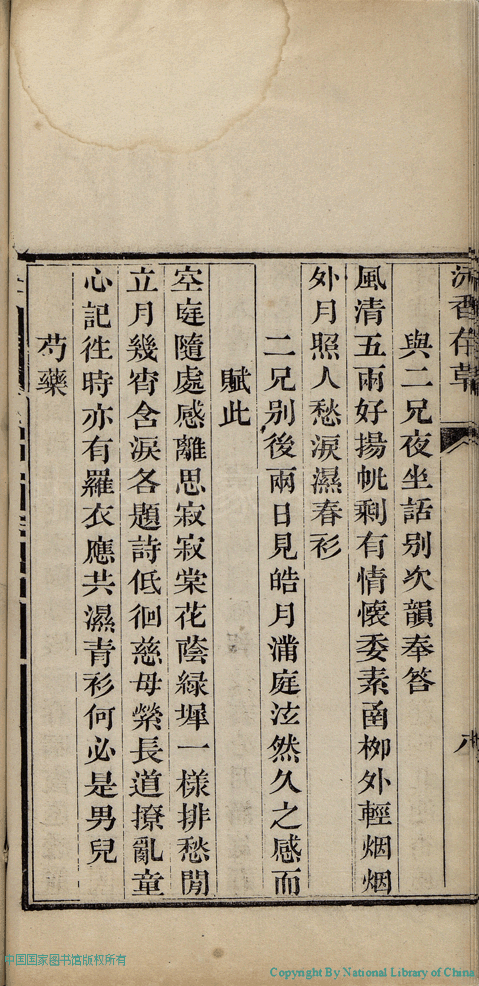 與二兄夜坐話别次韻奉答
風清五兩好揚帆剩有情懷委素函栁外輕烟烟
外月照人愁淚濕春衫
二兄别後兩日見皓月滿庭泫然久之感而
賦此
空庭隨處感離思寂寂棠花蔭緑墀一樣排愁閒
立月幾宵含淚各題詩低徊慈母縈長道撩亂童
心記徃時亦有羅衣應共濕青衫何必是男兒
芍藥
中国国家图书馆版权所有
Copyright By National Library of China